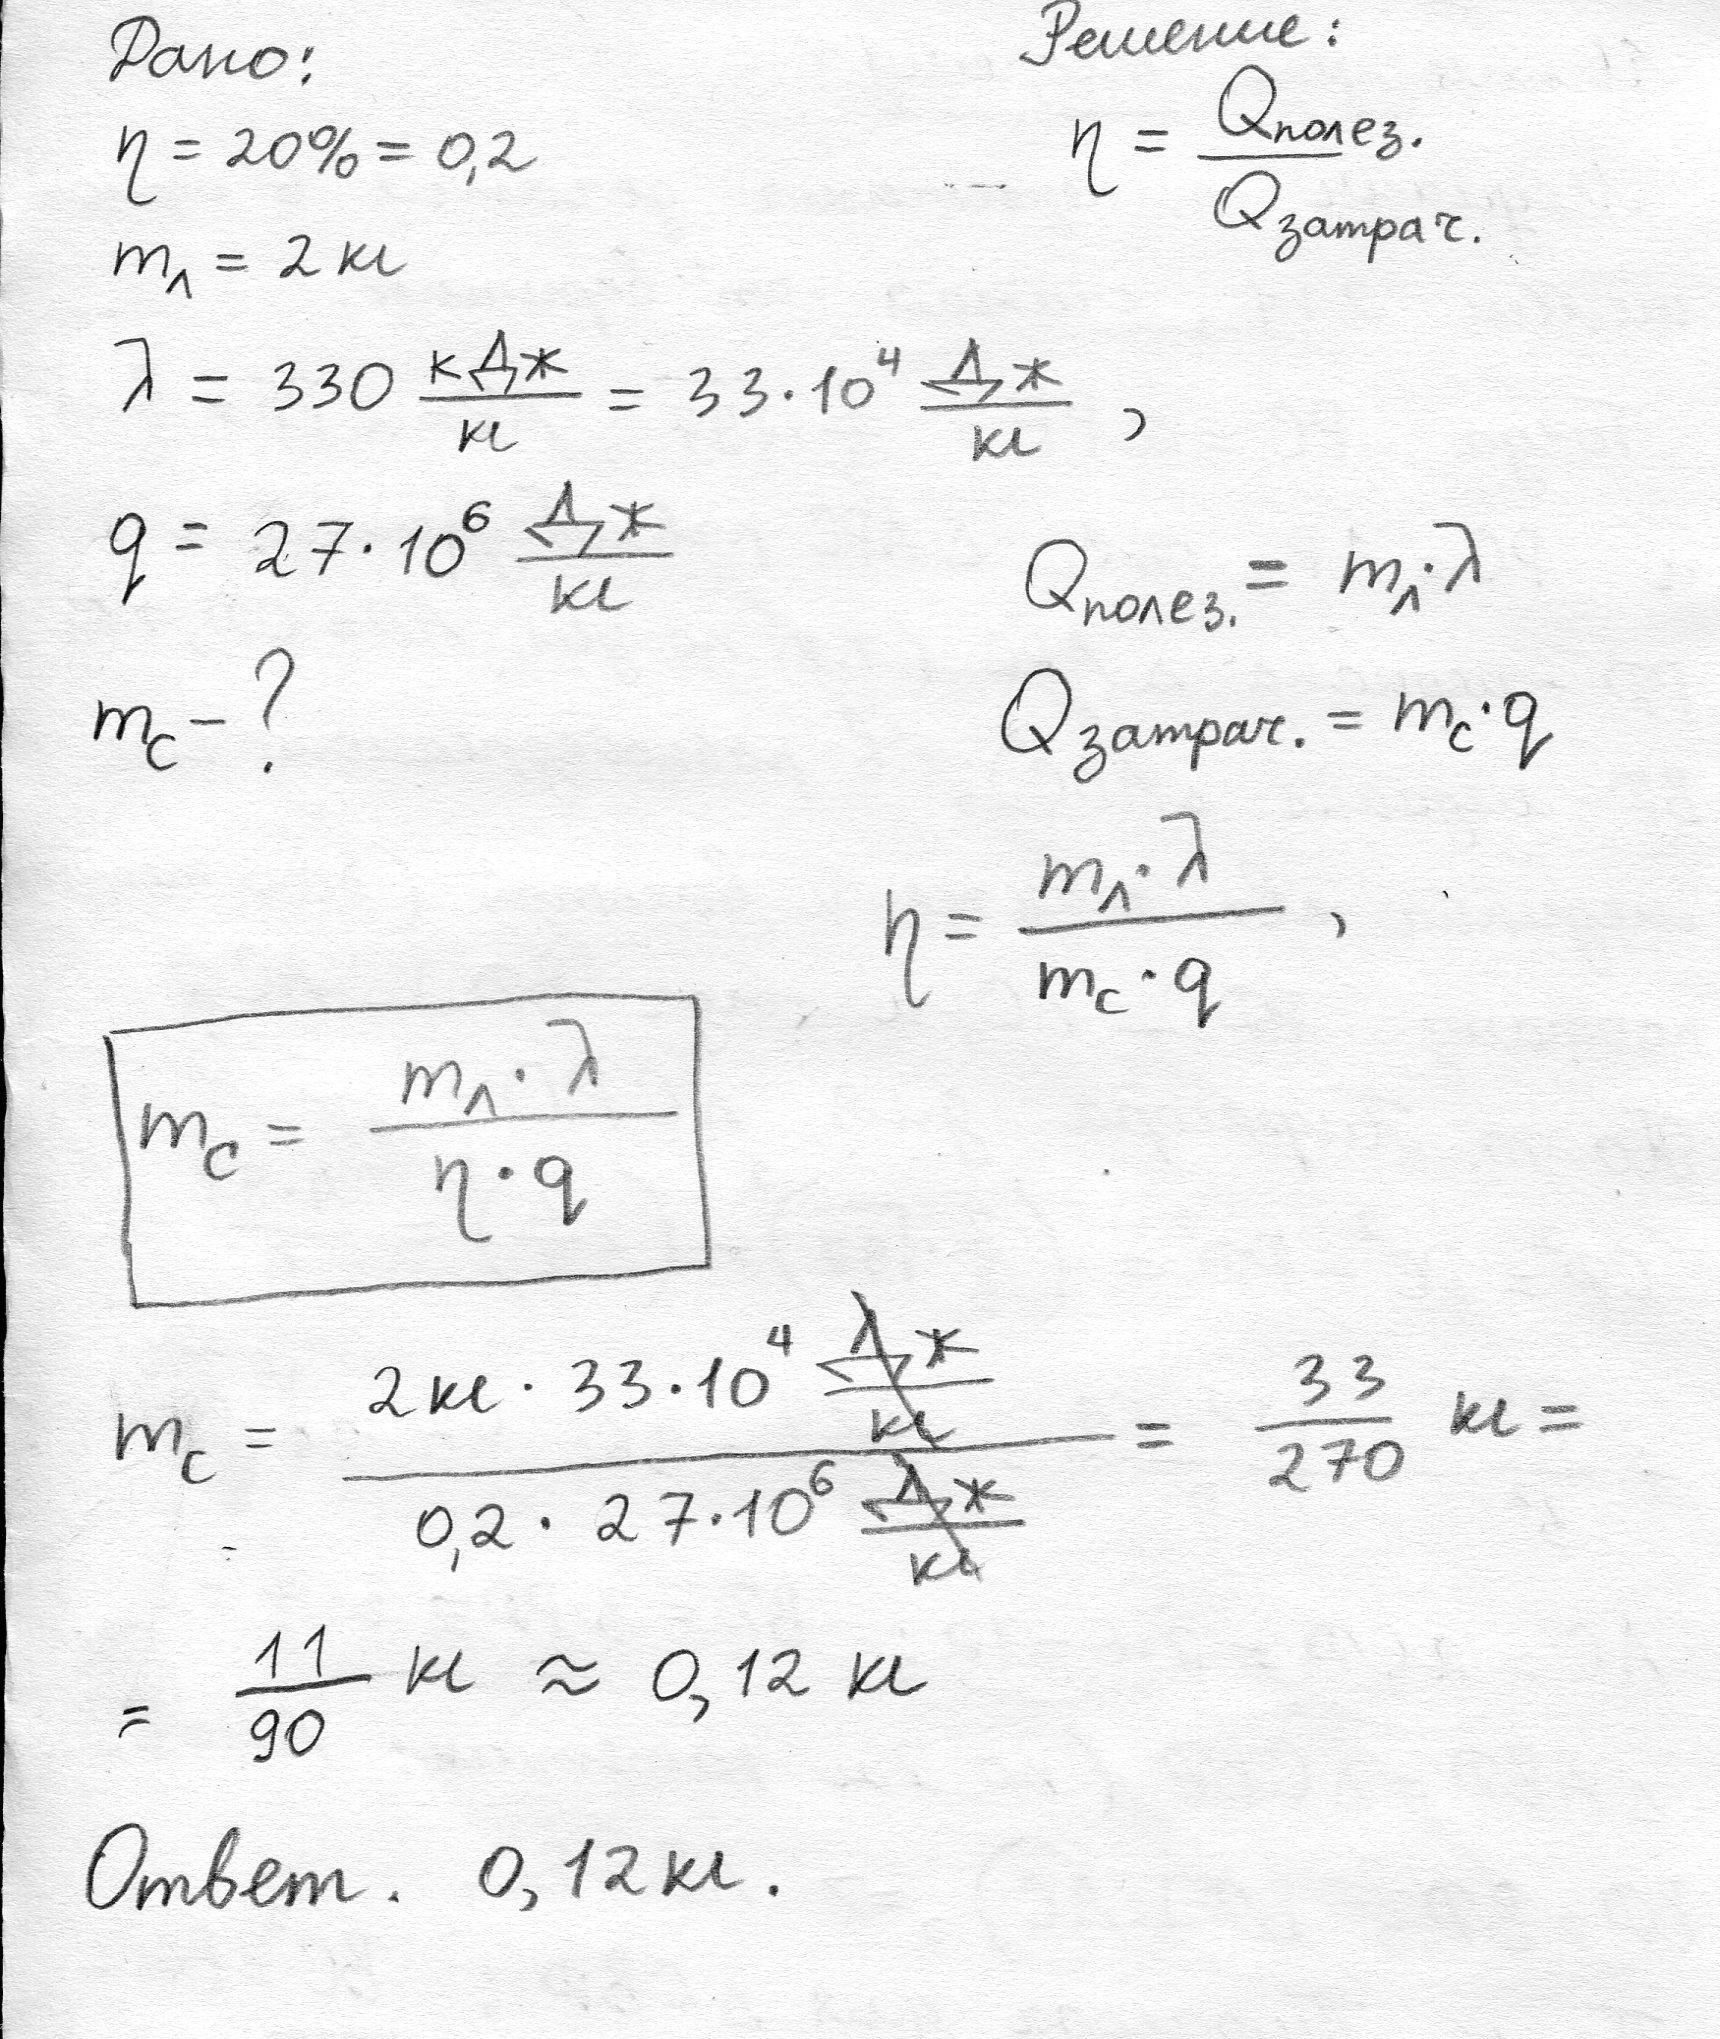 Дано:
η = 20% = 0,2
mл = 2 кг
λ = 330 кДж/кг = 33·10⁴ Дж/кг ,
q = 27·10⁶ Дж/кг
mс - ?
Решение:
η = Qполез. / Qзатрач.
Qполез. = mл·λ
Qзатрач. = mс·q
η = mл·λ / mс·q ,
mс = mл·λ / η·q
mс = 2кг · 33·10⁴ Дж/кг / 0,2 · 27·10⁶ Дж/кг = 33/270 кг =
= 11/90 кг ≈ 0,12 кг
Ответ. 0,12кг.